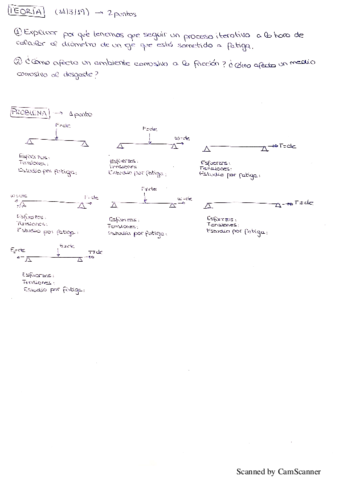 TEORÍA (11/3/19) → 2 puntos
① Explicar por qué tenemos que seguir un proceso iterativo a la hora de
calcular el diámetro de un eje que está sometido a fatiga.
② ¿Cómo afecta un ambiente corrosivo a la fricción? ¿Cómo afecta un medio
corrosivo al desgaste?
PROBLEMA → 1 punto
F=cte
Esfuerzos:
Tensiones:
Estudio por fatiga:
F=cte
w=cte
Esfuerzos:
Tensiones:
Estudio por fatiga:
F=cte
Esfuerzos:
Tensiones:
Estudio por fatiga:
Esfuerzos:
Tensiones:
Estudio por fatiga:
F=cte
w=cte
Esfuerzos:
Tensiones:
Estudio por fatiga:
Esfuerzos:
Tensiones:
Estudio por fatiga:
F=cte
Esfuerzos:
Tensiones:
Estudio por fatiga:
Scanned by CamScanner